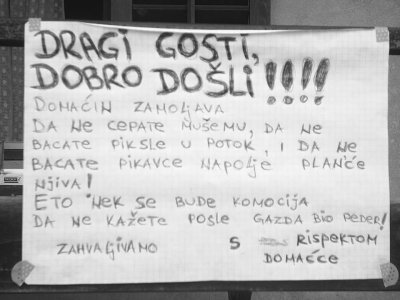 DRAGI GOSTI,
DOBRO DOŠLI !!!!
DOMAĆIN ZAMOLJAVA
DA NE CEPATE MUŠEMU, DA NE
BACATE PIKSLE U POTOK, I DA NE
BACATE PIKAVCE NAPOLJE PLANČE
NJIVA!
ETO NEK SE BUDE KOMOCIJA
DA NE KAŽETE POSLE GAZDA BIO PEDER!
ZAHVALJIVAMO S RISPEKTOM
DOMAĆCE